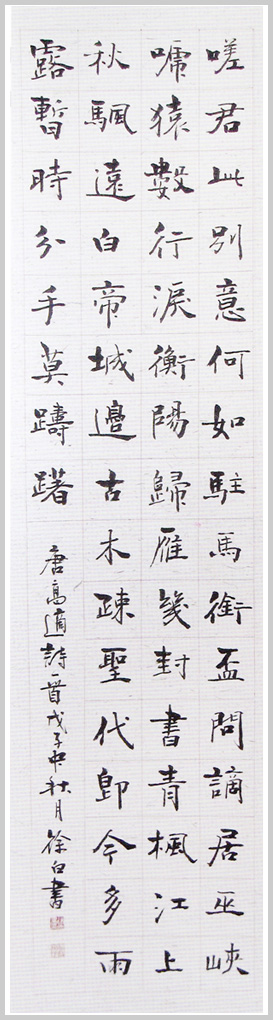 嗟君此別意何如駐馬銜盃問謫居巫峽
嗁猿數行淚衡陽歸雁幾封書青楓江上
秋颿遠白帝城邊古木疎聖代卽今多雨
露暫時分手莫躊躇
唐高適詩一首戊子中秋月徐白書